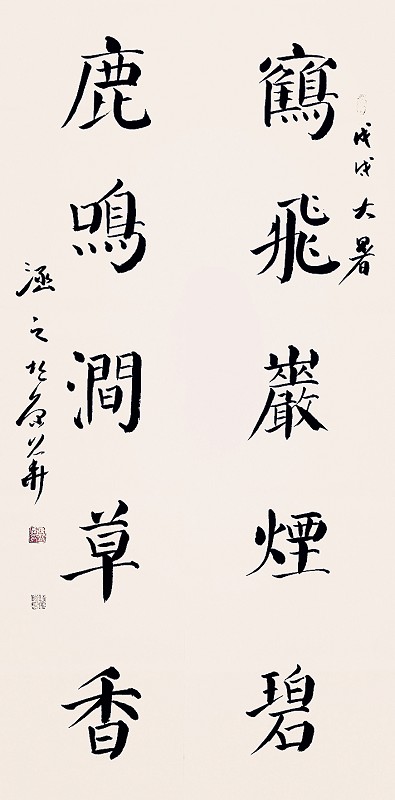 戊戌大暑
鶴飛巖煙碧
鹿鳴澗草香
涵之於